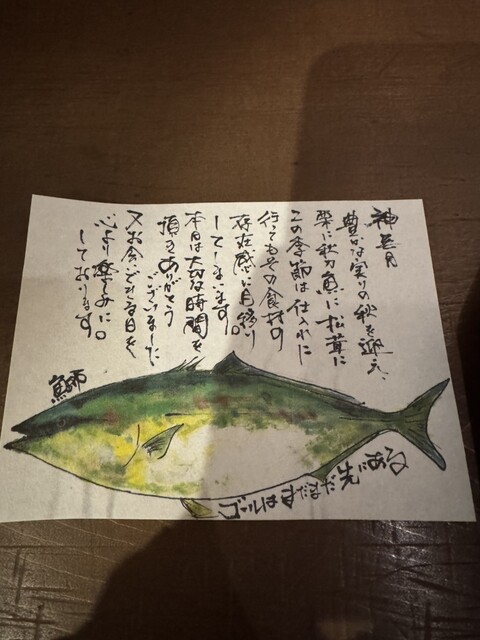 神無月
豊かな実りの秋を迎え、
栗に秋刀魚に松茸に
この季節は仕入れに
行ってもその食材の
存在感に目移り
してしまいます。
本日は大切な時間を
頂きありがとう
ございました
又お会いできる日を
心より楽しみに。
しております
鰤
ゴールはまだまだ先にある